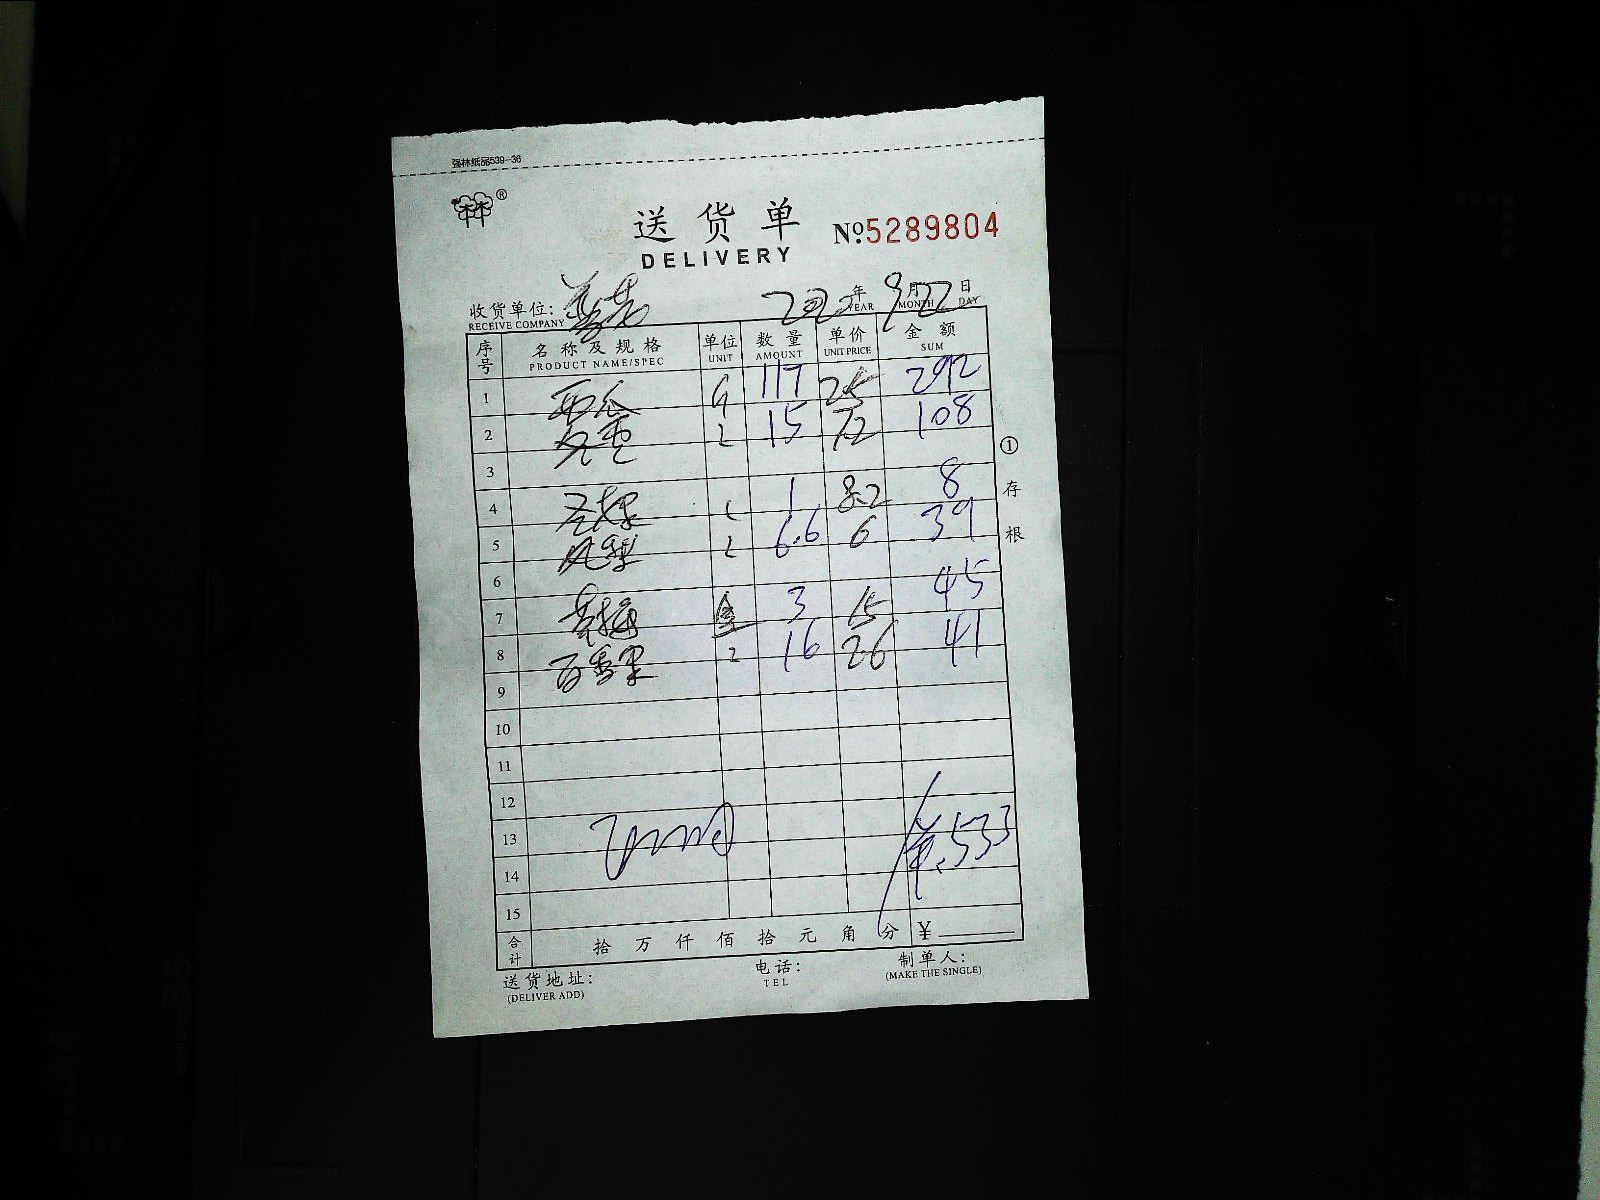 强林纸品539-36
林®
送货单 №5289804
DELIVERY
收货单位: 2022年9月22日
RECEIVE COMPANY YEAR MONTH DAY
序号 名称及规格 单位 数量 单价 金额
PRODUCT NAME/SPEC UNIT AMOUNT UNIT PRICE SUM
1 西瓜 117 25 292
2 15 72 108
3
4 1 8.2 8
5 凤梨 6.6 6 39
6
7 盒 3 15 45
8 百香果 16 26 41
9
10
11
12
13 ¥533
14
15
合计 拾万仟佰拾元角分 ¥
① 存根
送货地址: 电话: 制单人:
(DELIVER ADD) TEL (MAKE THE SINGLE)